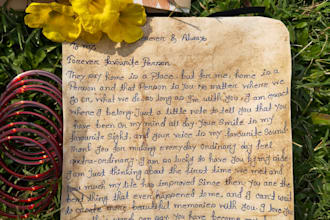 Forever & Always
To my
Forever favourite Person
They say home is a Place. but for me, home is a
Person and that Person is You. No matter where we
go or what we do as long as I'm with you, I am exact
where I belong. Just a little note to tell you that You
have been on my mind all day. Your smile in my
favourite Sight, and your voice in my favourite Sound.
Thank You for making everyday ordinary day feel
extra-ordinary. I am so lucky to have you by my side
I am Just thinking about the first time we met and
how much my life has improved Since then. You are the
best thing that ever happened to me, and I can't wait
to create more beautiful memories with You. I love
You have become